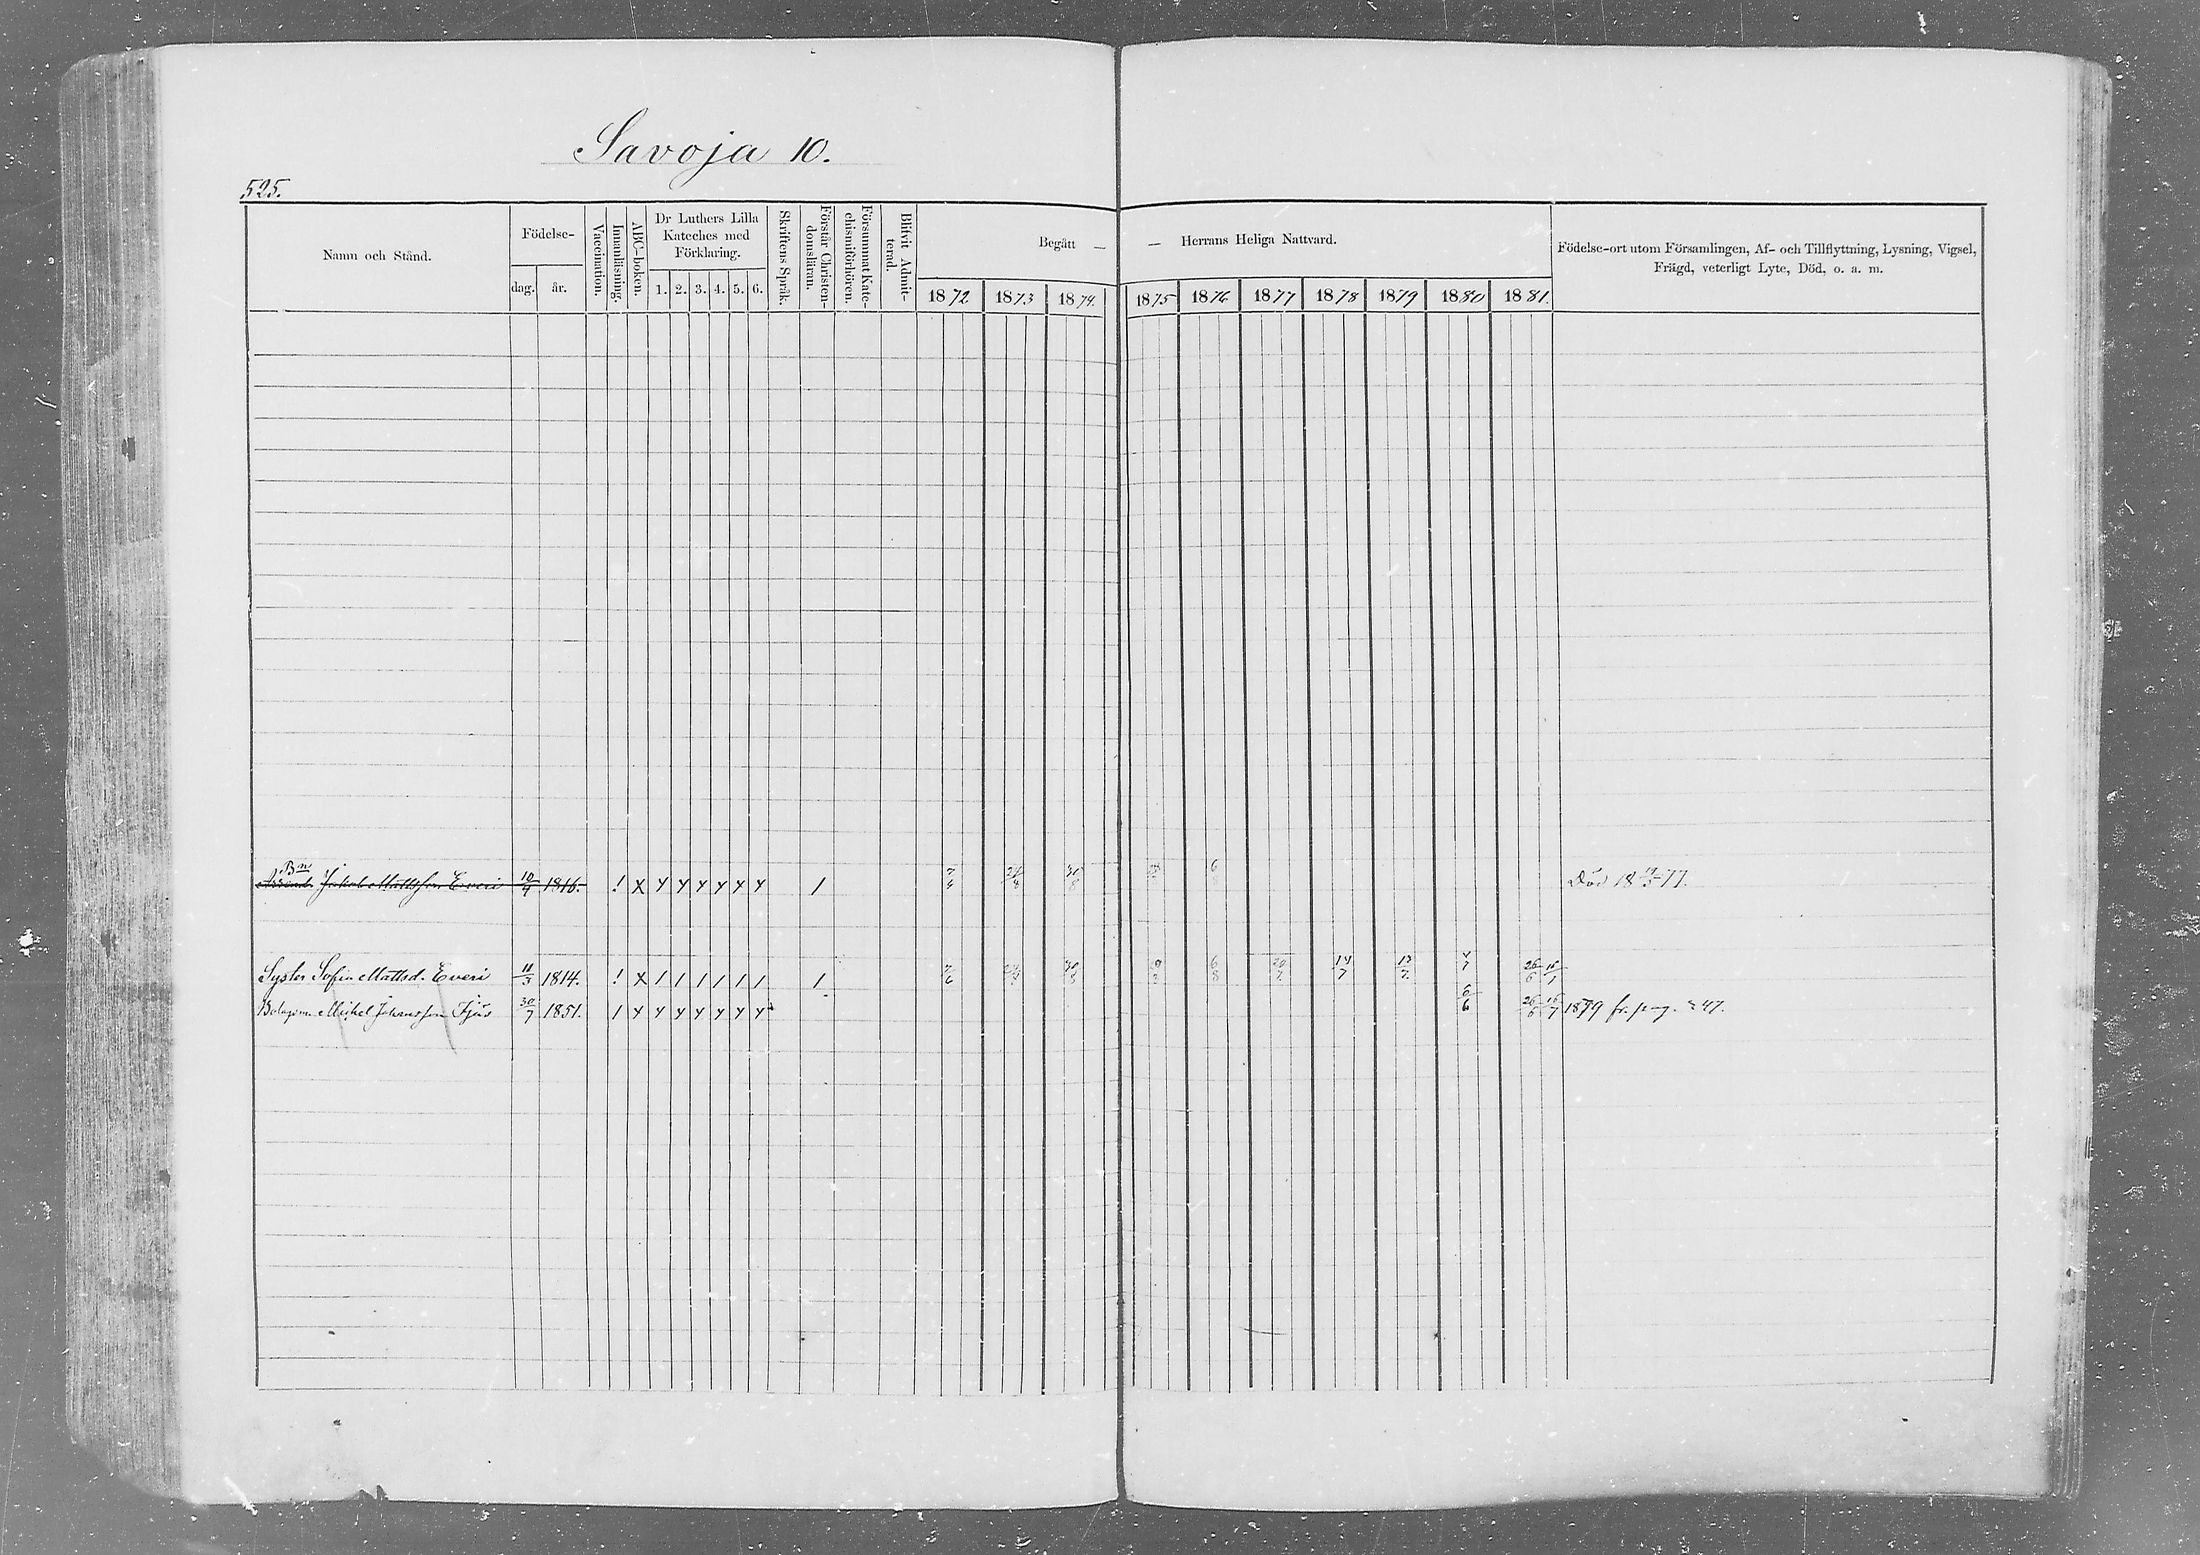 Savoja 10.
525.
Namn och Stånd.
Födelse-
dag. år.
Vaccination.
Innanläsning.
ABC-boken.
Dr Luthers Lilla
Kateches med
Förklaring.
1. 2. 3. 4. 5. 6.
Skriftens Språk.
Förstår Christen-
domsläran.
Försummat Kate-
chismiförhören.
Blifvit Admit-
terad.
Begått — — Herrans Heliga Nattvard.
1872 1873 1874. 1875 1876 1877 1878 1879 1880 1881.
Födelse-ort utom Församlingen, Af- och Tillflyttning, Lysning, Vigsel,
Frägd, veterligt Lyte, Död, o. a. m.
Bn
Jakob Mattsson Everi 10/4 1816. Död 18 /3 77.
Syster Sofia Mattsd. Everi 11/3 1814. 6/8 14/7 26/6
Bolagsm Mickel Johansson Fjus 30/7 1851. 6/6 26/6 1879 fr. pag. 47.